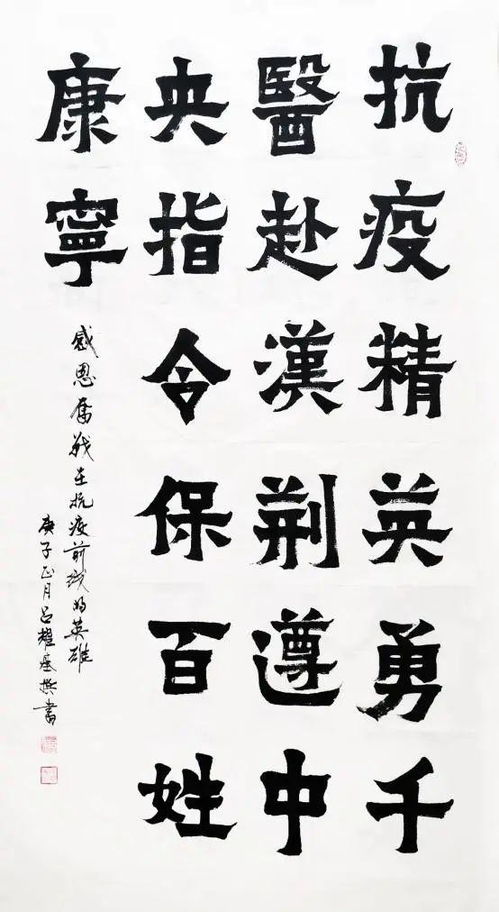 抗疫精英勇千
醫赴漢荆遵中
央指令保百姓
康寧
感恩奮戰在抗疫前线的英雄
庚子正月吕耀書